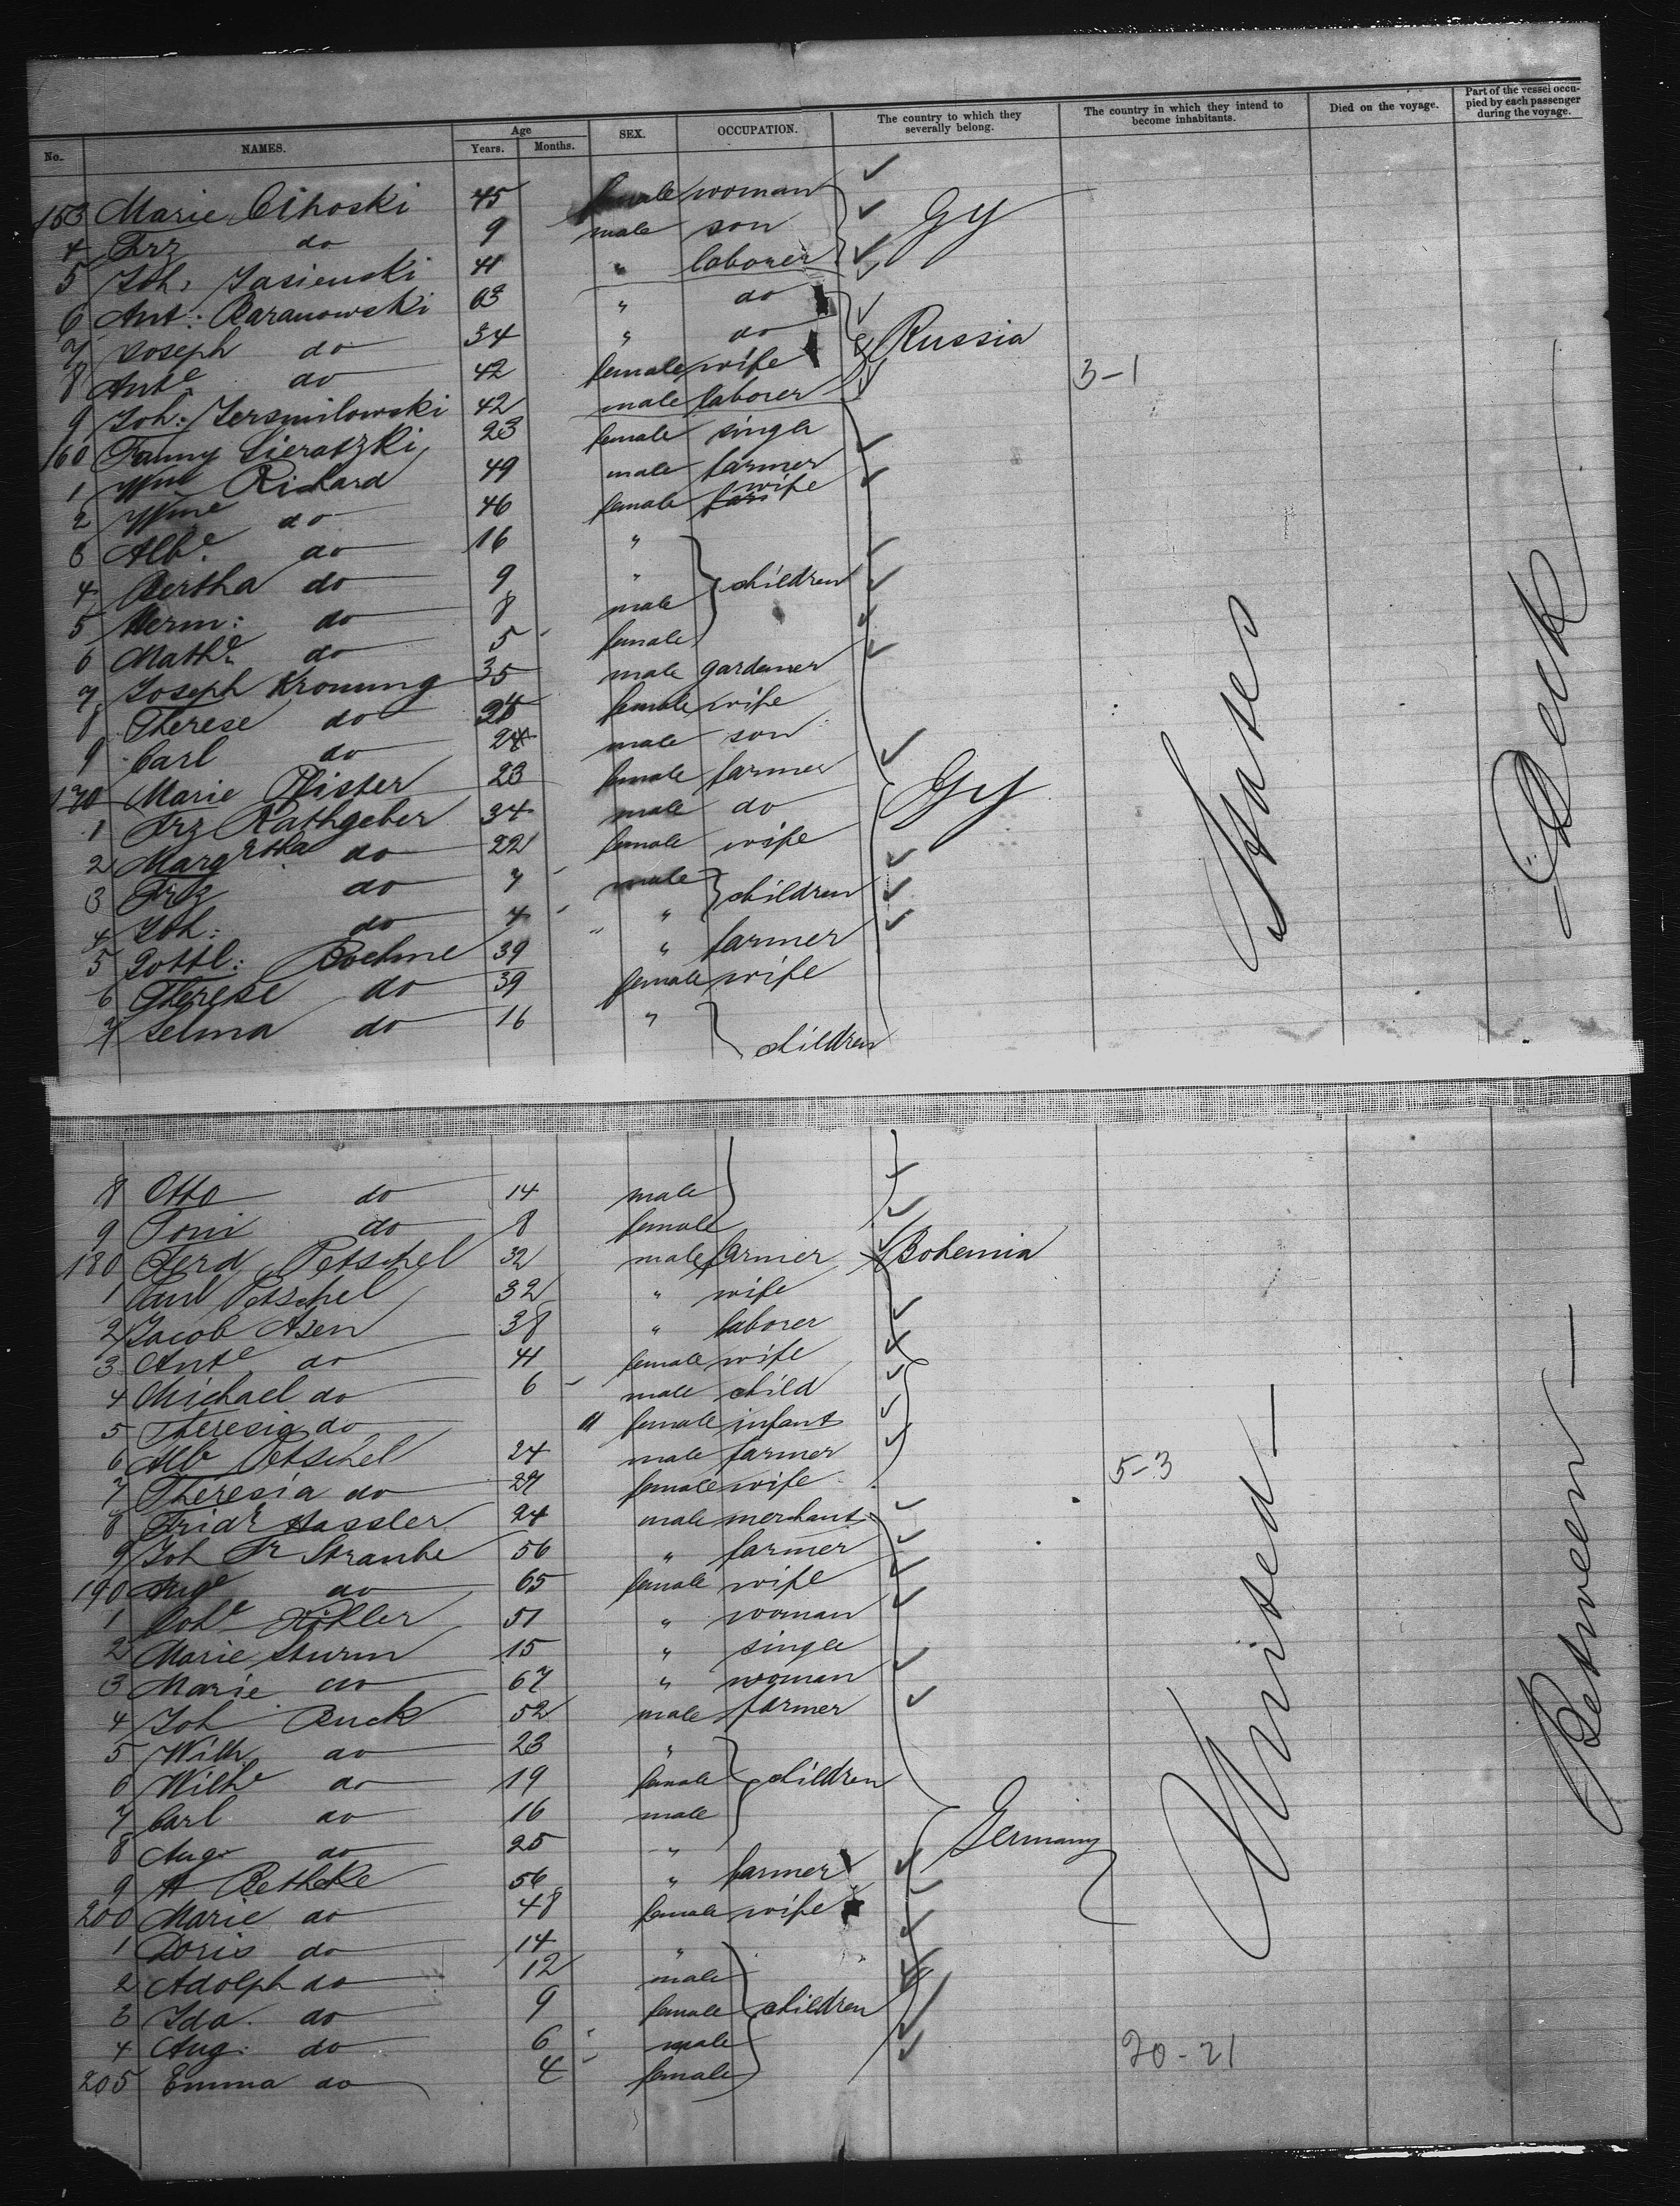 No. NAMES. Age Years. Months. SEX. OCCUPATION. The country to which they severally belong. The country in which they intend to become inhabitants. Died on the voyage. Part of the vessel occupied by each passenger during the voyage.
153 Marie Cihoski 45 female woman
4 Frz do 9 male son Gy
5 Joh: Jasienski 41 " laborer
6 Ant: Baranowski 63 " do
7 Joseph do 34 " do Russia
8 Ante do 42 female wife 3-1
9 Joh: Jersmilowski 42 male laborer
160 Fanny Sieratzki 23 female singa
1 Wm Richard 49 male farmer
2 Wme do 46 female wife
3 Albe do 16 "
4 Bertha do 9 " children
5 Herm: do 8 male
6 Mathe do 5 female
7 Joseph Kronung 35 male gardener
8 Therese do female wife
9 Carl do male son
170 Marie Pfister 23 female farmer
1 Frz Rathgeber 34 male do Gy
2 Margretha do 22 female wife
3 Frz do 7 male children
4 Joh: do 4 "
5 Gottl: Boehme 39 " farmer
6 Therese do 39 female wife
7 Selma do 16 " children
8 Otto do 14 male
9 Toni do 8 female
180 Ferd Petschel 32 male farmer Bohemia
1 Carl Petschel 32 " wife
2 Jacob Asen 38 " laborer
3 Ante do 41 female wife
4 Michael do 6 male child
5 Theresia do 11 female infant
6 Alb Petschel 24 male farmer
7 Theresia do 27 female wife 5-3
8 Fridr Hassler 24 male merchant
9 Joh Fr Straube 56 " farmer
190 Auge do 65 female wife
1 Köhler 51 " woman
2 Marie Sturm 15 " singa
3 Marie do 67 " woman
4 Joh Buck 52 male farmer
5 Wilh do 23 "
6 Wilhe do 19 female children
7 Carl do 16 male
8 Aug: do 25 " Germany
9 A Bethke 56 " farmer
200 Marie do 48 female wife
1 Doris do 14 "
2 Adolph do 12 male
3 Ida do 9 female children
4 Aug: do 6 male 20-21
205 Emma do 4 female
United States
Between Deck